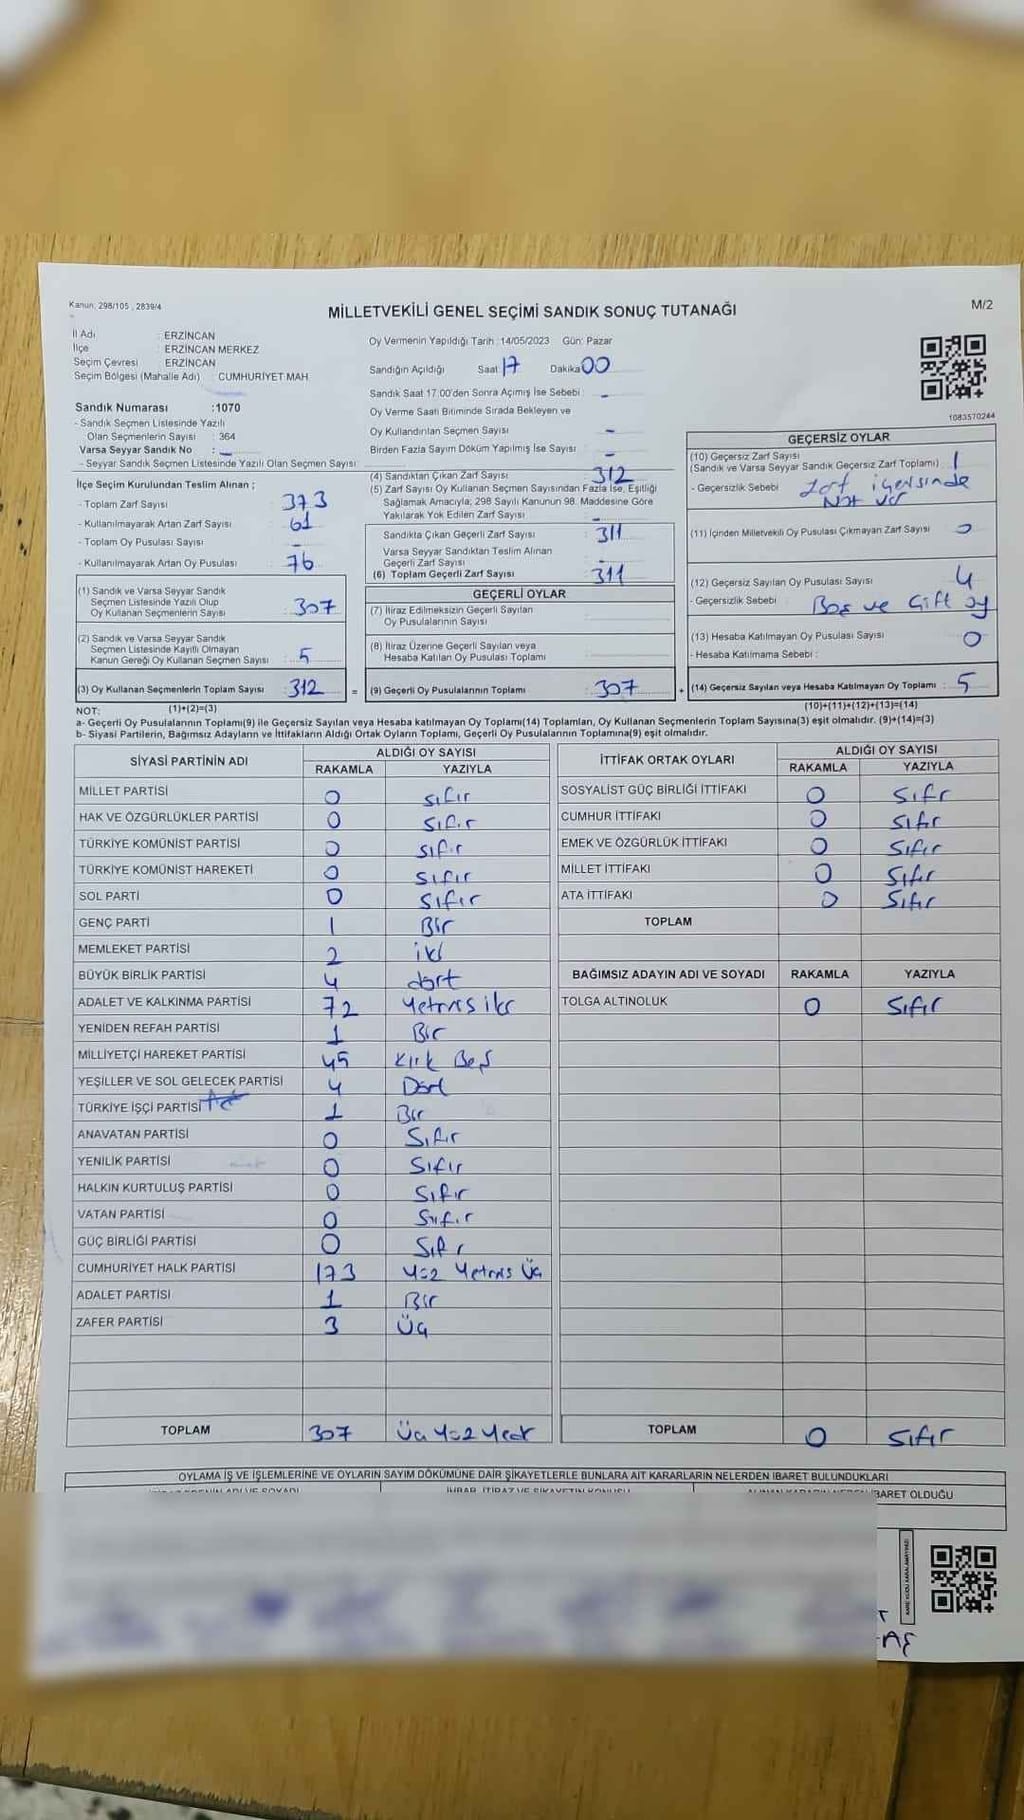 Kanun: 298/105 , 2839/4
MİLLETVEKİLİ GENEL SEÇİMİ SANDIK SONUÇ TUTANAĞI
M/2
İl Adı : ERZİNCAN
İlçe : ERZİNCAN MERKEZ
Seçim Çevresi : ERZİNCAN
Seçim Bölgesi (Mahalle Adı) : CUMHURİYET MAH.
Sandık Numarası :1070
- Sandık Seçmen Listesinde Yazılı
Olan Seçmenlerin Sayısı : 364
Varsa Seyyar Sandık No : -
- Seyyar Sandık Seçmen Listesinde Yazılı Olan Seçmen Sayısı :
İlçe Seçim Kurulundan Teslim Alınan ;
- Toplam Zarf Sayısı : 373
- Kullanılmayarak Artan Zarf Sayısı : 61
- Toplam Oy Pusulası Sayısı : -
- Kullanılmayarak Artan Oy Pusulası : 76
(1) Sandık ve Varsa Seyyar Sandık
Seçmen Listesinde Yazılı Olup
Oy Kullanan Seçmenlerin Sayısı : 307
(2) Sandık ve Varsa Seyyar Sandık
Seçmen Listesinde Kayıtlı Olmayan
Kanun Gereği Oy Kullanan Seçmen Sayısı : 5
(3) Oy Kullanan Seçmenlerin Toplam Sayısı : 312 =
Oy Vermenin Yapıldığı Tarih : 14/05/2023 Gün: Pazar
Sandığın Açıldığı Saat: 17 Dakika: 00
Sandık Saat 17:00'den Sonra Açılmış İse Sebebi : -
Oy Verme Saati Bitiminde Sırada Bekleyen ve
Oy Kullandırılan Seçmen Sayısı : -
Birden Fazla Sayım Döküm Yapılmış İse Sayısı : -
(4) Sandıktan Çıkan Zarf Sayısı : 312
(5) Zarf Sayısı Oy Kullanan Seçmen Sayısından Fazla İse, Eşitliği
Sağlamak Amacıyla; 298 Sayılı Kanunun 98. Maddesine Göre
Yakılarak Yok Edilen Zarf Sayısı : -
Sandıkta Çıkan Geçerli Zarf Sayısı : 311
Varsa Seyyar Sandıktan Teslim Alınan
Geçerli Zarf Sayısı : -
(6) Toplam Geçerli Zarf Sayısı : 311
GEÇERLİ OYLAR
(7) İtiraz Edilmeksizin Geçerli Sayılan
Oy Pusulalarının Sayısı :
(8) İtiraz Üzerine Geçerli Sayılan veya
Hesaba Katılan Oy Pusulası Toplamı :
(9) Geçerli Oy Pusulalarının Toplamı : 307 +
1083570244
GEÇERSİZ OYLAR
(10) Geçersiz Zarf Sayısı
(Sandık ve Varsa Seyyar Sandık Geçersiz Zarf Toplamı) : 1
- Geçersizlik Sebebi : Zarf içerisinde
Not var
(11) İçinden Milletvekili Oy Pusulası Çıkmayan Zarf Sayısı : 0
(12) Geçersiz Sayılan Oy Pusulası Sayısı : 4
- Geçersizlik Sebebi : Boş ve Çift oy
(13) Hesaba Katılmayan Oy Pusulası Sayısı : 0
- Hesaba Katılmama Sebebi :
(14) Geçersiz Sayılan veya Hesaba Katılmayan Oy Toplamı : 5
NOT: (1)+(2)=(3) (10)+(11)+(12)+(13)=(14)
a- Geçerli Oy Pusulalarının Toplamı(9) ile Geçersiz Sayılan veya Hesaba katılmayan Oy Toplamı(14) Toplamları, Oy Kullanan Seçmenlerin Toplam Sayısına(3) eşit olmalıdır. (9)+(14)=(3)
b- Siyasi Partilerin, Bağımsız Adayların ve İttifakların Aldığı Ortak Oyların Toplamı, Geçerli Oy Pusulalarının Toplamına(9) eşit olmalıdır.
SİYASİ PARTİNİN ADI ALDIĞI OY SAYISI
RAKAMLA YAZIYLA
MİLLET PARTİSİ 0 sıfır
HAK VE ÖZGÜRLÜKLER PARTİSİ 0 sıfır
TÜRKİYE KOMÜNİST PARTİSİ 0 sıfır
TÜRKİYE KOMÜNİST HAREKETİ 0 sıfır
SOL PARTİ 0 sıfır
GENÇ PARTİ 1 Bir
MEMLEKET PARTİSİ 2 iki
BÜYÜK BİRLİK PARTİSİ 4 dört
ADALET VE KALKINMA PARTİSİ 72 Yetmiş iki
YENİDEN REFAH PARTİSİ 1 Bir
MİLLİYETÇİ HAREKET PARTİSİ 45 Kırk Beş
YEŞİLLER VE SOL GELECEK PARTİSİ 4 Dört
TÜRKİYE İŞÇİ PARTİSİ 1 Bir
ANAVATAN PARTİSİ 0 Sıfır
YENİLİK PARTİSİ 0 Sıfır
HALKIN KURTULUŞ PARTİSİ 0 Sıfır
VATAN PARTİSİ 0 Sıfır
GÜÇ BİRLİĞİ PARTİSİ 0 Sıfır
CUMHURİYET HALK PARTİSİ 173 Yüz Yetmiş Üç
ADALET PARTİSİ 1 Bir
ZAFER PARTİSİ 3 Üç
TOPLAM 307 Üç Yüz Yedi
İTTİFAK ORTAK OYLARI ALDIĞI OY SAYISI
RAKAMLA YAZIYLA
SOSYALİST GÜÇ BİRLİĞİ İTTİFAKI 0 Sıfır
CUMHUR İTTİFAKI 0 Sıfır
EMEK VE ÖZGÜRLÜK İTTİFAKI 0 Sıfır
MİLLET İTTİFAKI 0 Sıfır
ATA İTTİFAKI 0 Sıfır
TOPLAM
BAĞIMSIZ ADAYIN ADI VE SOYADI RAKAMLA YAZIYLA
TOLGA ALTINOLUK 0 Sıfır
TOPLAM 0 Sıfır
OYLAMA İŞ VE İŞLEMLERİNE VE OYLARIN SAYIM DÖKÜMÜNE DAİR ŞİKAYETLERLE BUNLARA AİT KARARLARIN NELERDEN İBARET BULUNDUKLARI
İHBAR, İTİRAZ VE ŞİKAYETİN KONUSU
İBARET OLDUĞU